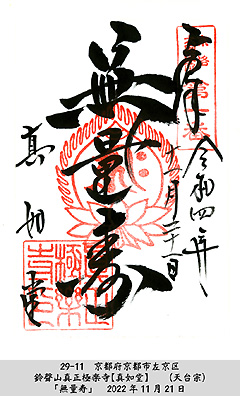 奉拝
令和四年
十一月二十一日
無量寿
真如堂
29-11 京都府京都市左京区
鈴聲山真正極楽寺【真如堂】 (天台宗)
「無量寿」 2022年11月21日